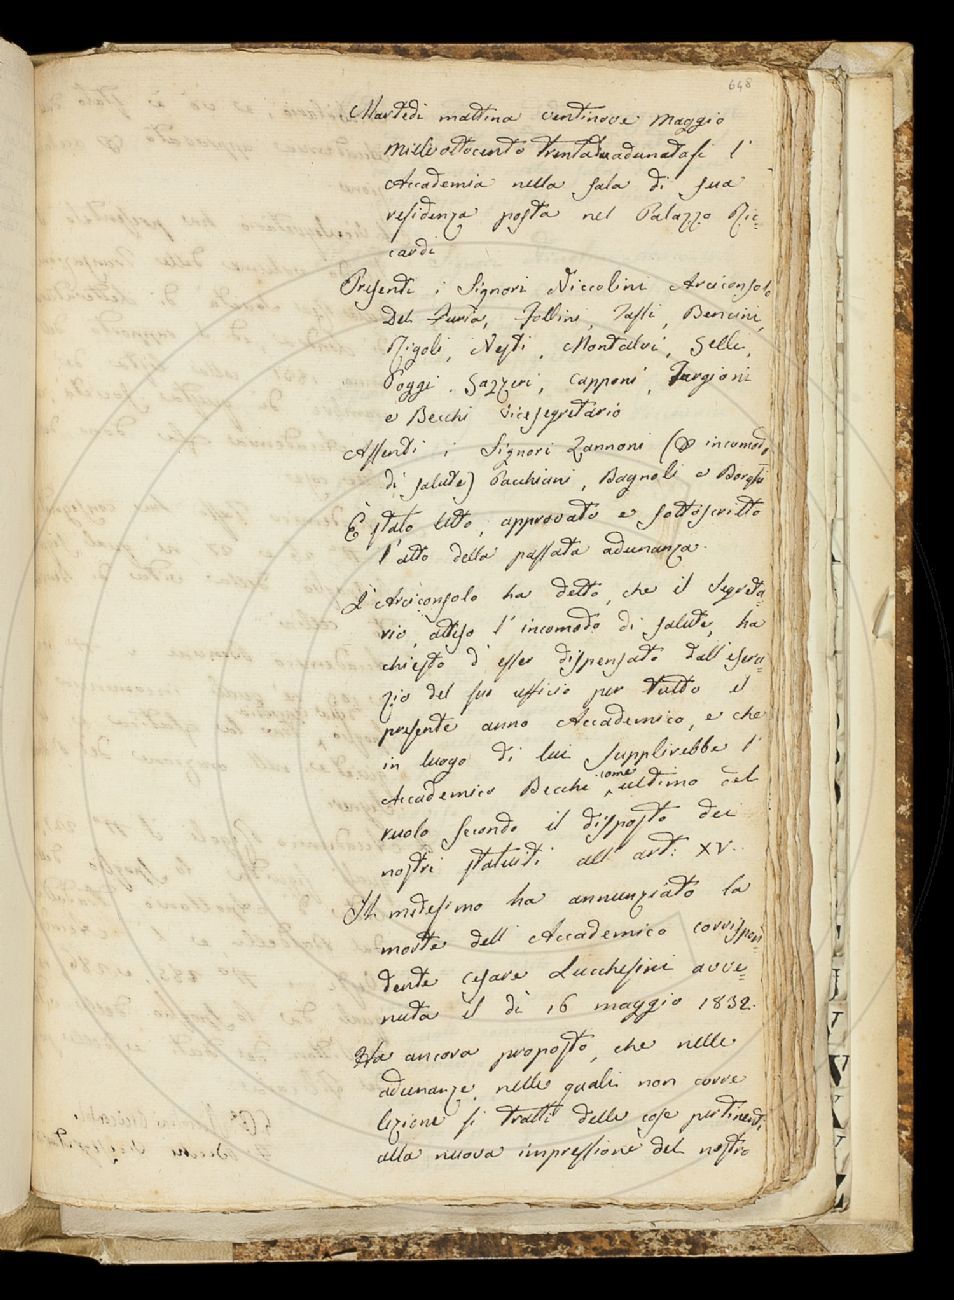 648
Martedì mattina ventinove Maggio
mille ottocento trentadue adunatasi l'
Accademia nella sala di sua
residenza posta nel Palazzo Ric=
cardi
Presenti i Signori Niccolini Arciconsolo
Del Furia, Follini, Tassi, Bencini,
Rigoli, Nesti, Montalvi, Selle,
Poggi, Gazzeri, Capponi, Targioni
e Becchi Vicesegretario
Assenti i Signori Zannoni (p incomodo
di salute) Pacchiani, Bagnoli e Borghi
È stato letto, approvato e sottoscritto
l'atto della passata adunanza.
L'Arciconsolo ha detto, che il Segreta=
rio, atteso l'incomodo di salute, ha
chiesto d'esser dispensato dall'eserci=
zio del suo uffizio per tutto il
presente anno Accademico, e che
in luogo di lui supplirebbe l'
Accademico Becchi come ultimo del
ruolo secondo il disposto dei
nostri statuti all'art: XV.
Il medesimo ha annunziato la
morte dell'Accademico corrispon=
dente Cesare Lucchesini avve=
nuta il dì 16 maggio 1832.
Ha ancora proposto, che nelle
adunanze, nelle quali non corre
lezione si tratti delle cose pertinenti
alla nuova impressione del nostro